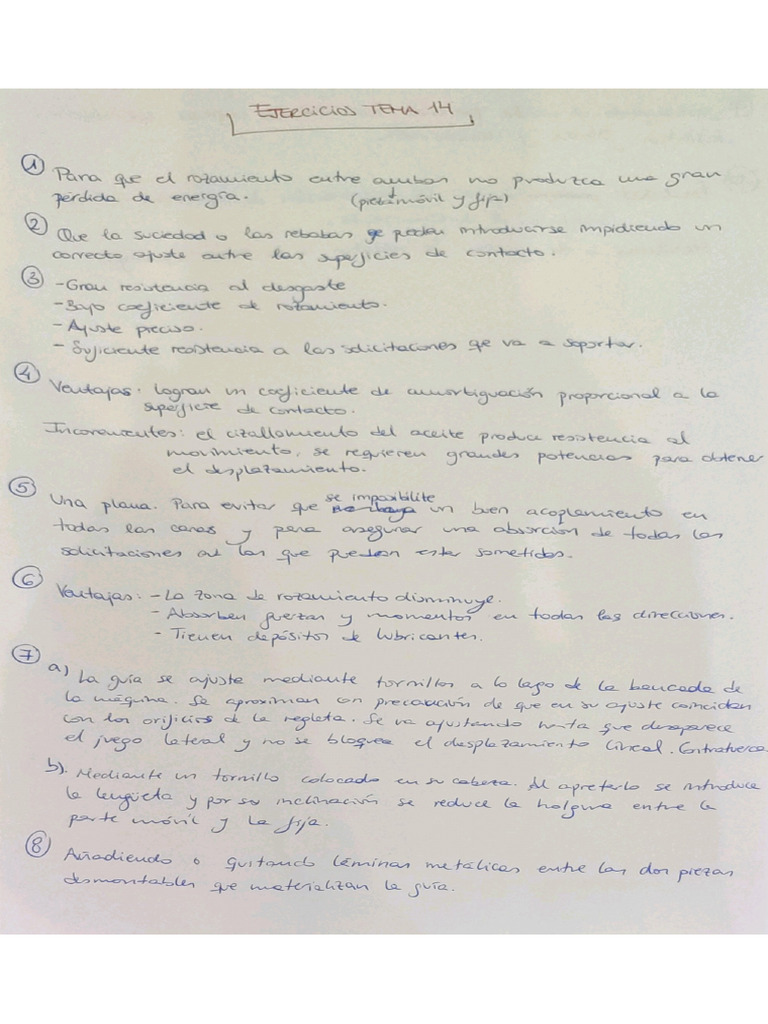 EJERCICIOS TEMA 14
① Para que el rozamiento entre ambas no produzca una gran
pérdida de energía. (pieza móvil y fija)
② Que la suciedad o las rebabas se pueden introducirse impidiendo un
correcto ajuste entre las superficies de contacto.
③ - Gran resistencia al desgaste
- Bajo coeficiente de rozamiento.
- Ajuste preciso.
- Suficiente resistencia a las solicitaciones que va a soportar.
④ Ventajas: logran un coeficiente de amortiguación proporcional a la
superficie de contacto.
Inconvenientes: el cizallamiento del aceite produce resistencia al
movimiento, se requieren grandes potencias para obtener
el desplazamiento.
⑤ Una plana. Para evitar que se imposibilite un bien acoplamiento en
todas las caras y para asegurar una absorción de todas las
solicitaciones a las que puedan estar sometidos.
⑥ Ventajas: - La zona de rozamiento disminuye.
- Absorben fuerzas y momentos en todas las direcciones.
- Tienen depósitos de lubricantes.
⑦ a) La guía se ajuste mediante tornillos a lo lago de la bancada de
la máquina. Se aproximan con precaución de que en su ajuste coincidan
con los orificios de la regleta. Se va ajustando hasta que desaparece
el juego lateral y no se bloquea el desplazamiento lineal. Contratuerca.
b). Mediante un tornillo colocado en su cabeza. Al apretarlo se introduce
la lengüeta y por su inclinación se reduce la holgura entre la
parte móvil y la fija.
⑧ Añadiendo o quitando láminas metálicas entre las dos piezas
desmontables que materializan la guía.